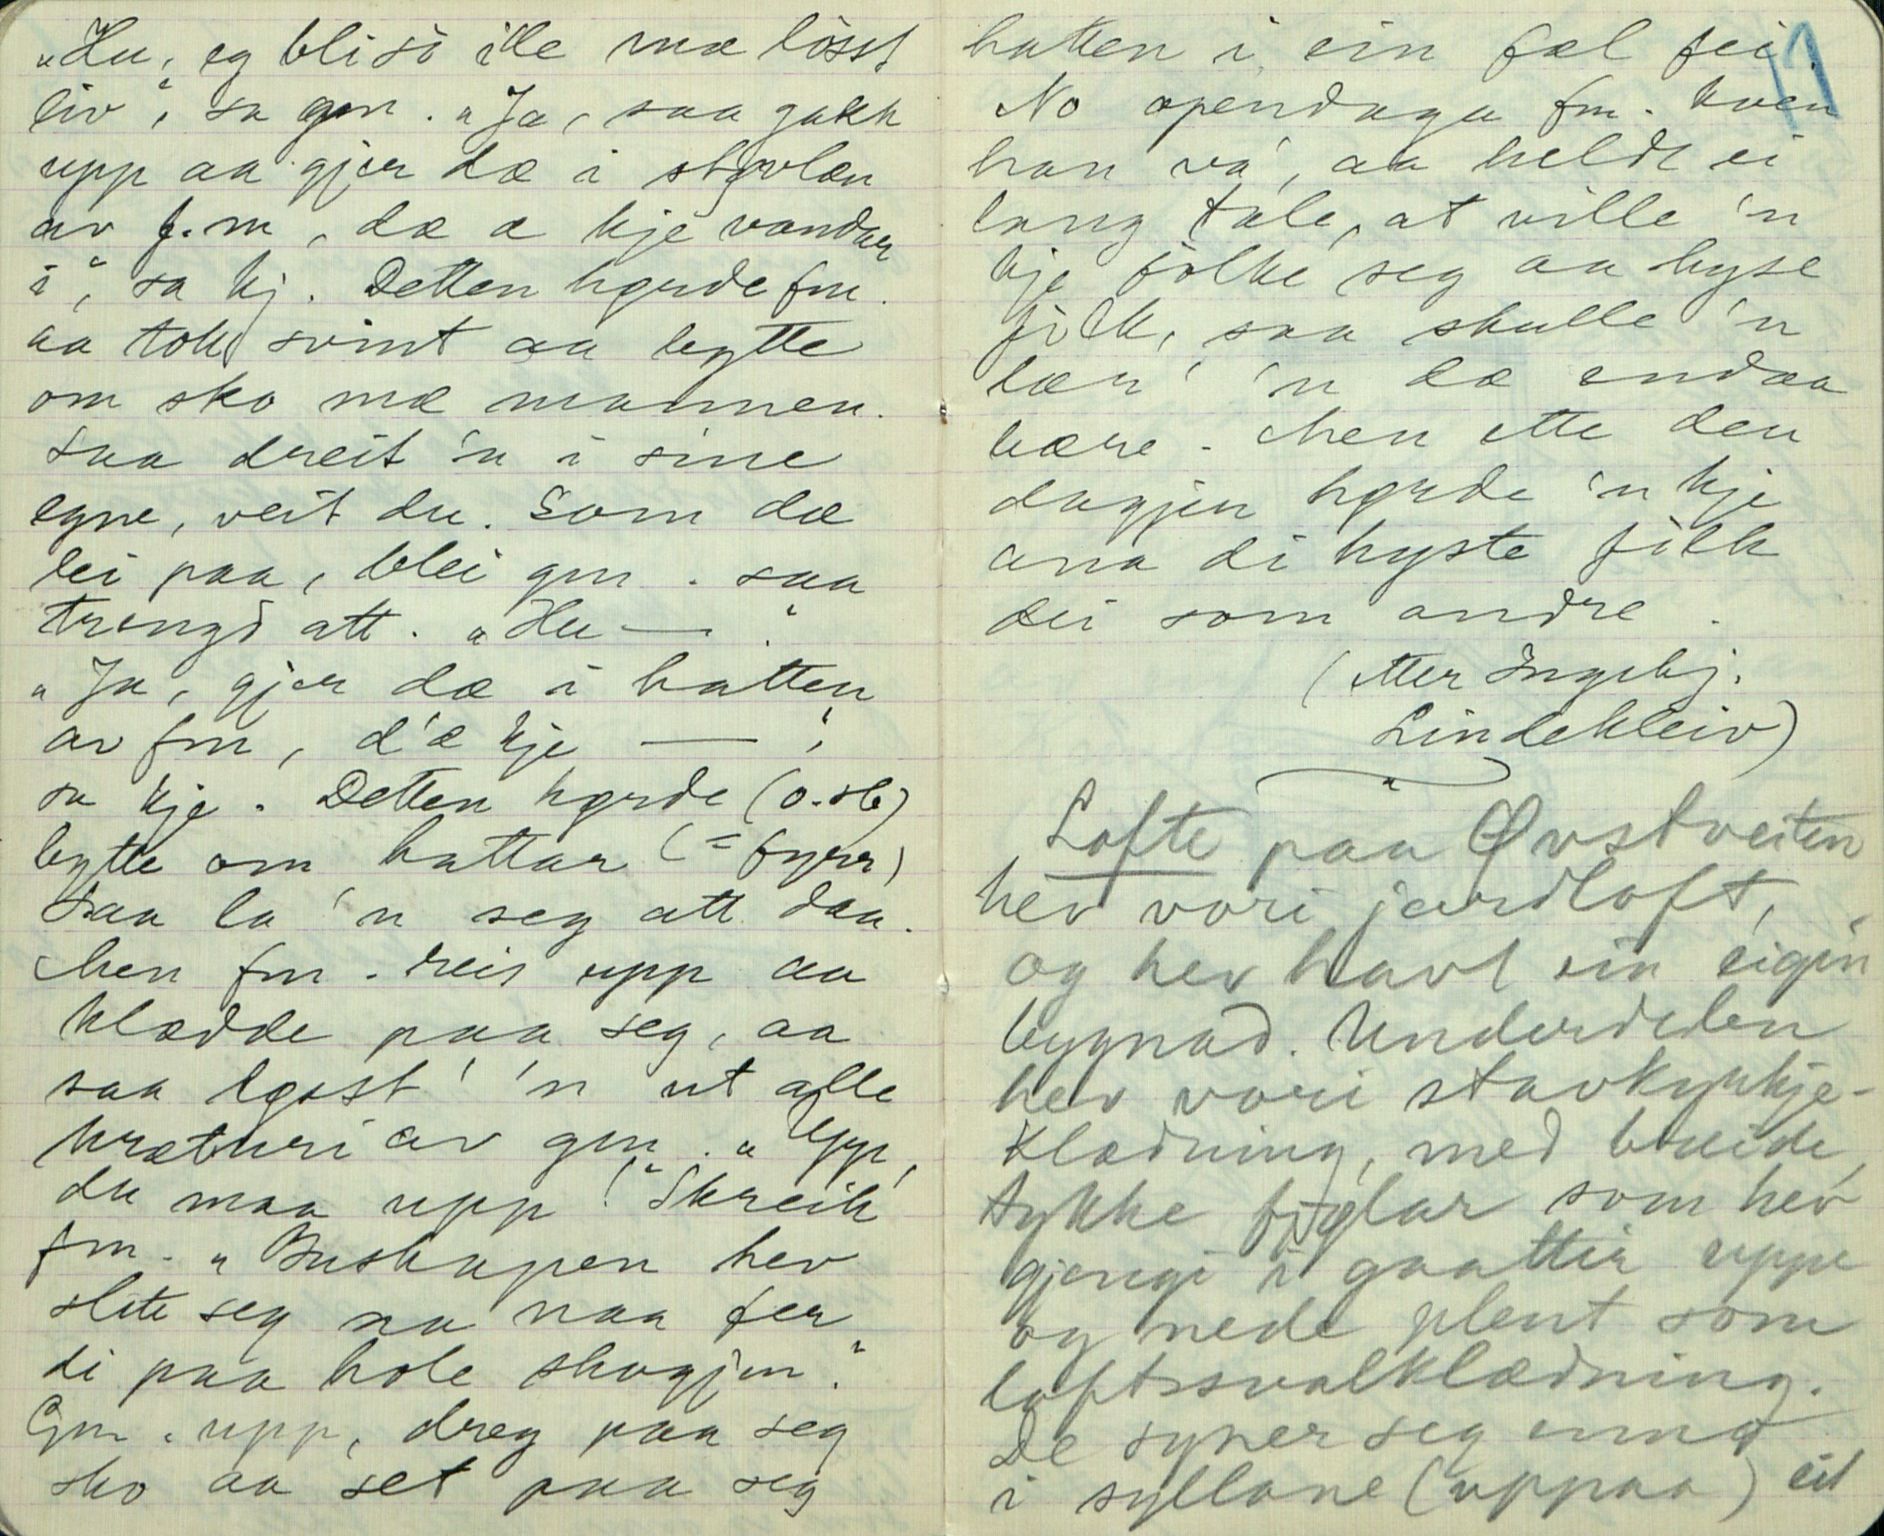 "Hu, eg bli sò ille mæ löist
liv", sa gm. "Ja, saa gakk
upp aa gjer dæ i støvlæn
av f.m, dæ æ kje vandar
i", sa kj. Detten høyrde fm.
aa tok svint aa bytte
om sko mæ mannen.
Saa dreit 'n i sine
egne, veit du. Som dæ
lei paa, blei gm. saa
trengd att. "Hu — ."
"Ja, gjer dæ i hatten
av fm, d'æ kje — ",
sa kje. Detten høyrde (o.sb)
bytte om hattar (= fyrr)
Saa la 'n seg att daa.
Men fm. reis upp aa
klædde paa seg, aa
saa løyst' 'n ut alle
kræturi av gm. "Upp,
du maa upp!" Skreik
fm. "Buskapen hev
slite seg na naa fer
di paa hole skogjen."
Gm. upp, dreg paa seg
sko aa set paa seg
hatten i ein fæl fei.
17
No opendaga fm. kven
han va', aa heldt ei
lang tale, at ville 'n
kje jolke seg aa hyse
folk, saa skulle 'n
lær' 'n dæ endaa
bære. Men ette den
dagjen høyrde 'n kje
ana di hyste folk
dei som andre.
(etter Ingebj.
Lindekleiv)
Lofte paa Øvstveiten
hev vori jordloft,
og hev havt ein eigin
bygnad. Underdelen
hev vori stavkyrkje-
klædning, med breide,
tykke fjølar som hev
gjengi i gaattir uppe
og nede plent som
loftssvalklædning.
De syner seg enno
i syllane (uppaa) eit